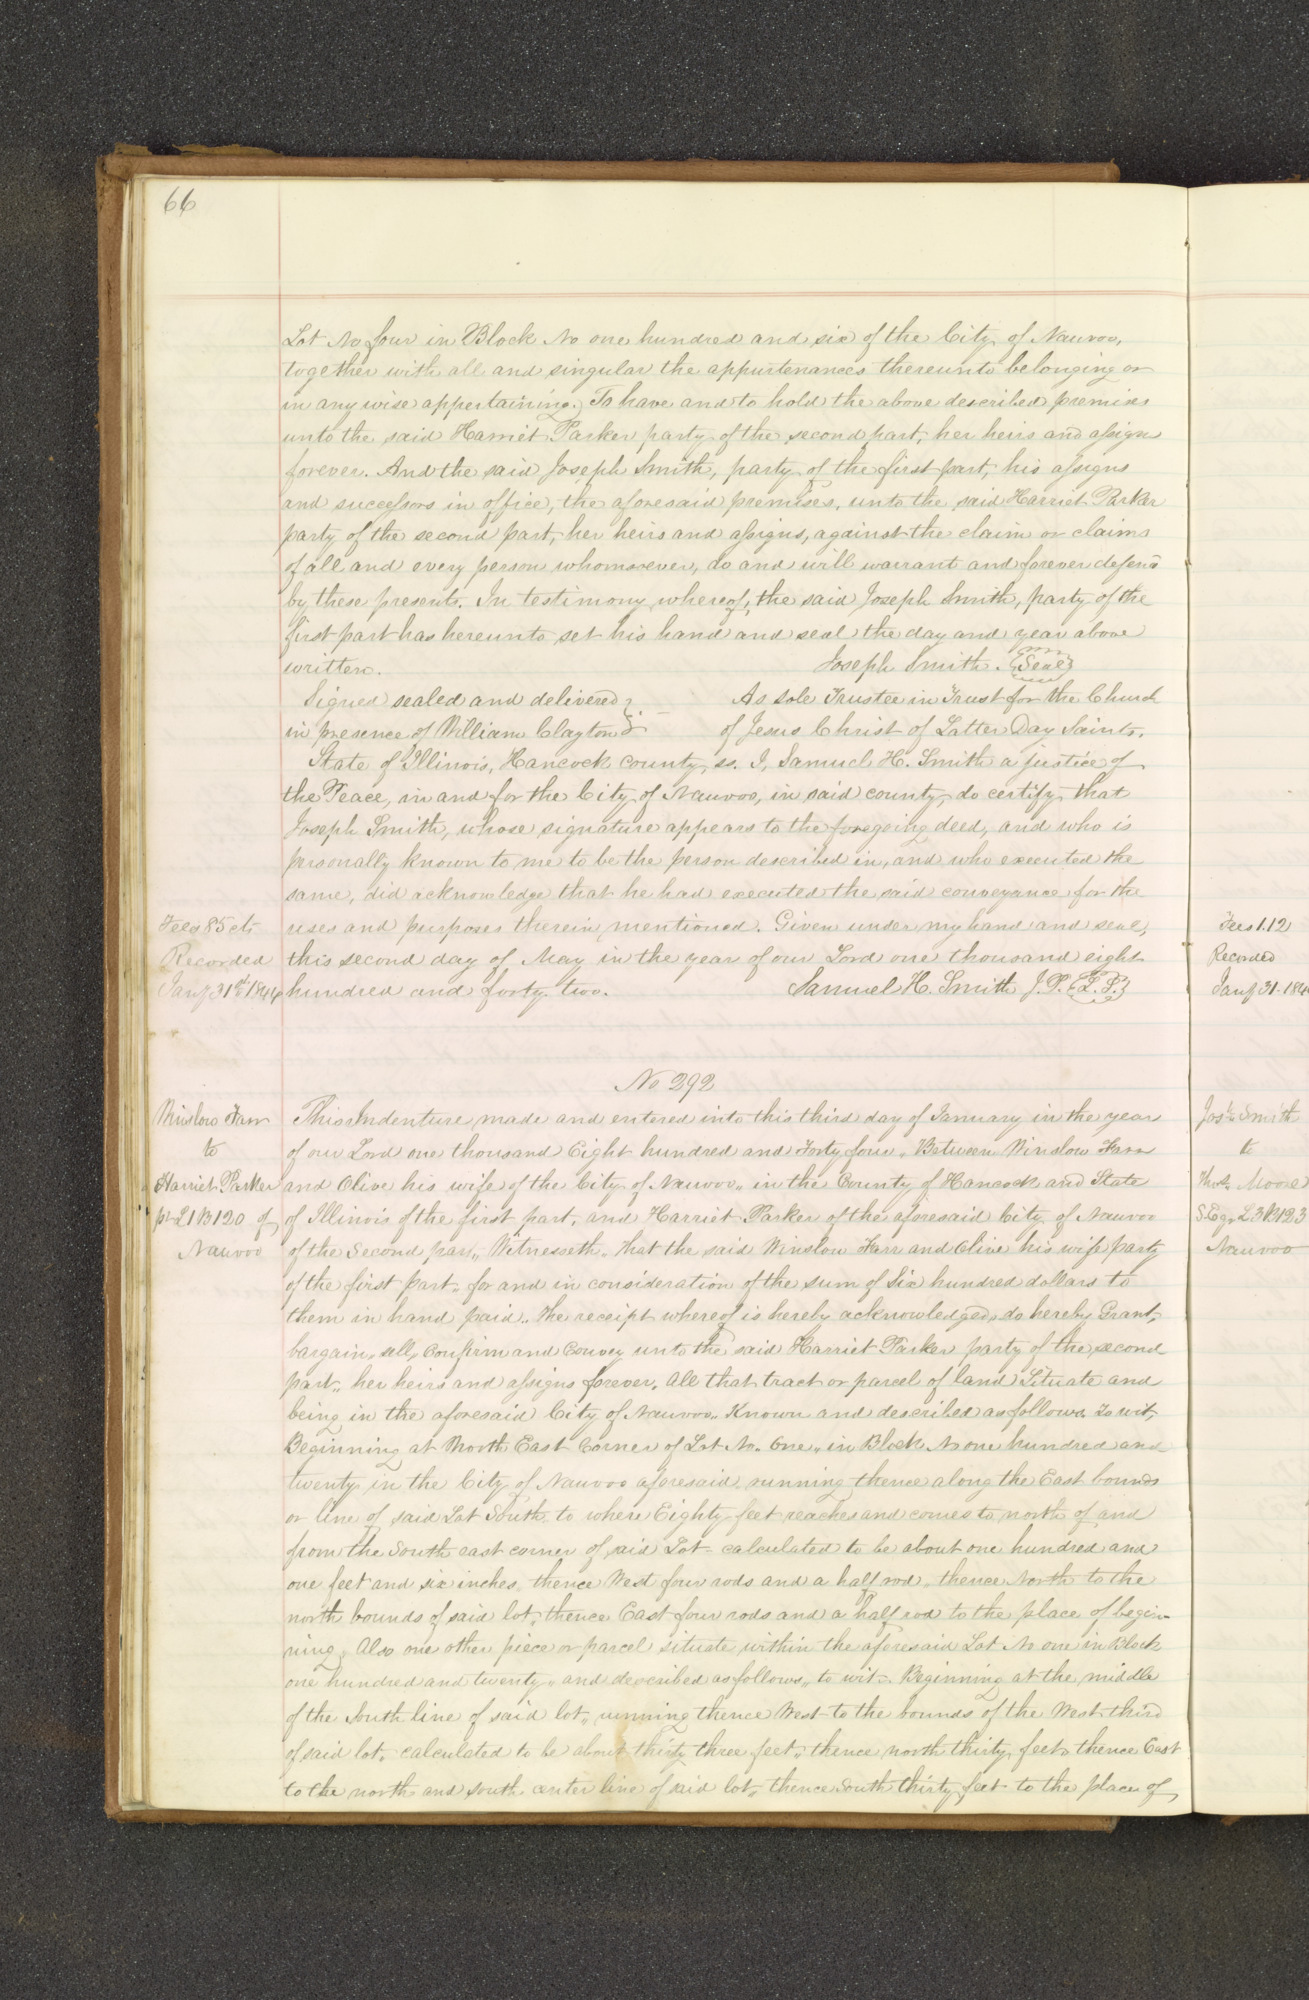 66
Lot No four in Block No one hundred and six of the City of Nauvoo,
together with all and singular the appurtenances thereunto belonging or
in any wise appertaining. To have and to hold the above described premises
unto the said Harriet Parker party of the second part, her heirs and assigns
forever. And the said Joseph Smith, party of the first part, his assigns
and successors in office, the aforesaid premises, unto the said Harriet Parker
party of the second part, her heirs and assigns, against the claim or claims
of all and every person whomsoever, do and will warrant and forever defend
by these presents. In testimony whereof, the said Joseph Smith, party of the
first part has hereunto set his hand and seal the day and year above
written. Joseph Smith. {Seal}
Signed sealed and delivered } As sole Trustee in Trust for the Church
in presence of William Clayton } of Jesus Christ of Latter Day Saints.
State of Illinois, Hancock county, ss. I, Samuel H. Smith a justice of
the Peace, in and for the City of Nauvoo, in said county, do certify that
Joseph Smith, whose signature appears to the foregoing deed, and who is
personally known to me to be the person described in, and who executed the
same, did acknowledge that he had executed the said conveyance for the
Fees 85 cts uses and purposes therein mentioned. Given under my hand and seal,
Recorded this second day of May in the year of our Lord one thousand eight
Jany 31st 1844 hundred and forty two. Samuel H. Smith J.P. {L.S.}
No 292
Winslow Farr This Indenture made and entered into this third day of January in the year
to of our Lord one thousand Eight hundred and Forty four, Between Winslow Farr
Harriet Parker and Olive his wife of the City of Nauvoo, in the County of Hancock and State
pt L1 B120 of of Illinois of the first part, and Harriet Parker of the aforesaid City of Nauvoo
Nauvoo of the Second part, Witnesseth, that the said Winslow Farr and Olive his wife party
of the first part, for and in consideration of the sum of Six hundred dollars to
them in hand paid, the receipt whereof is hereby acknowledged, do hereby Grant,
bargain, sell, Confirm and Convey unto the said Harriet Parker party of the second
part, her heirs and assigns forever, all that tract or parcel of land Situate and
being in the aforesaid City of Nauvoo, Known and described as follows To wit,
Beginning at North East Corner of Lot No. One, in Block No one hundred and
twenty in the City of Nauvoo aforesaid, running thence along the East bounds
or line of said Lot South, to where Eighty feet reaches and comes to north of and
from the South east corner of said Lot calculated to be about one hundred and
one feet and six inches, thence West four rods and a half rod, thence North to the
north bounds of said lot, thence East four rods and a half rod to the place of begin-
ning, Also one other piece or parcel situate within the aforesaid Lot No one in Block
one hundred and twenty, and described as follows, to wit. Beginning at the middle
of the South line of said lot, running thence West to the bounds of the West third
of said lot, calculated to be about thirty three feet, thence north thirty feet, thence East
to the north and south center line of said lot, thence South thirty feet to the place of
Fees 1.12
Recorded
Jany 31. 184
Jos. Smith
to
Thos. Moore
L3 B123
Nauvoo